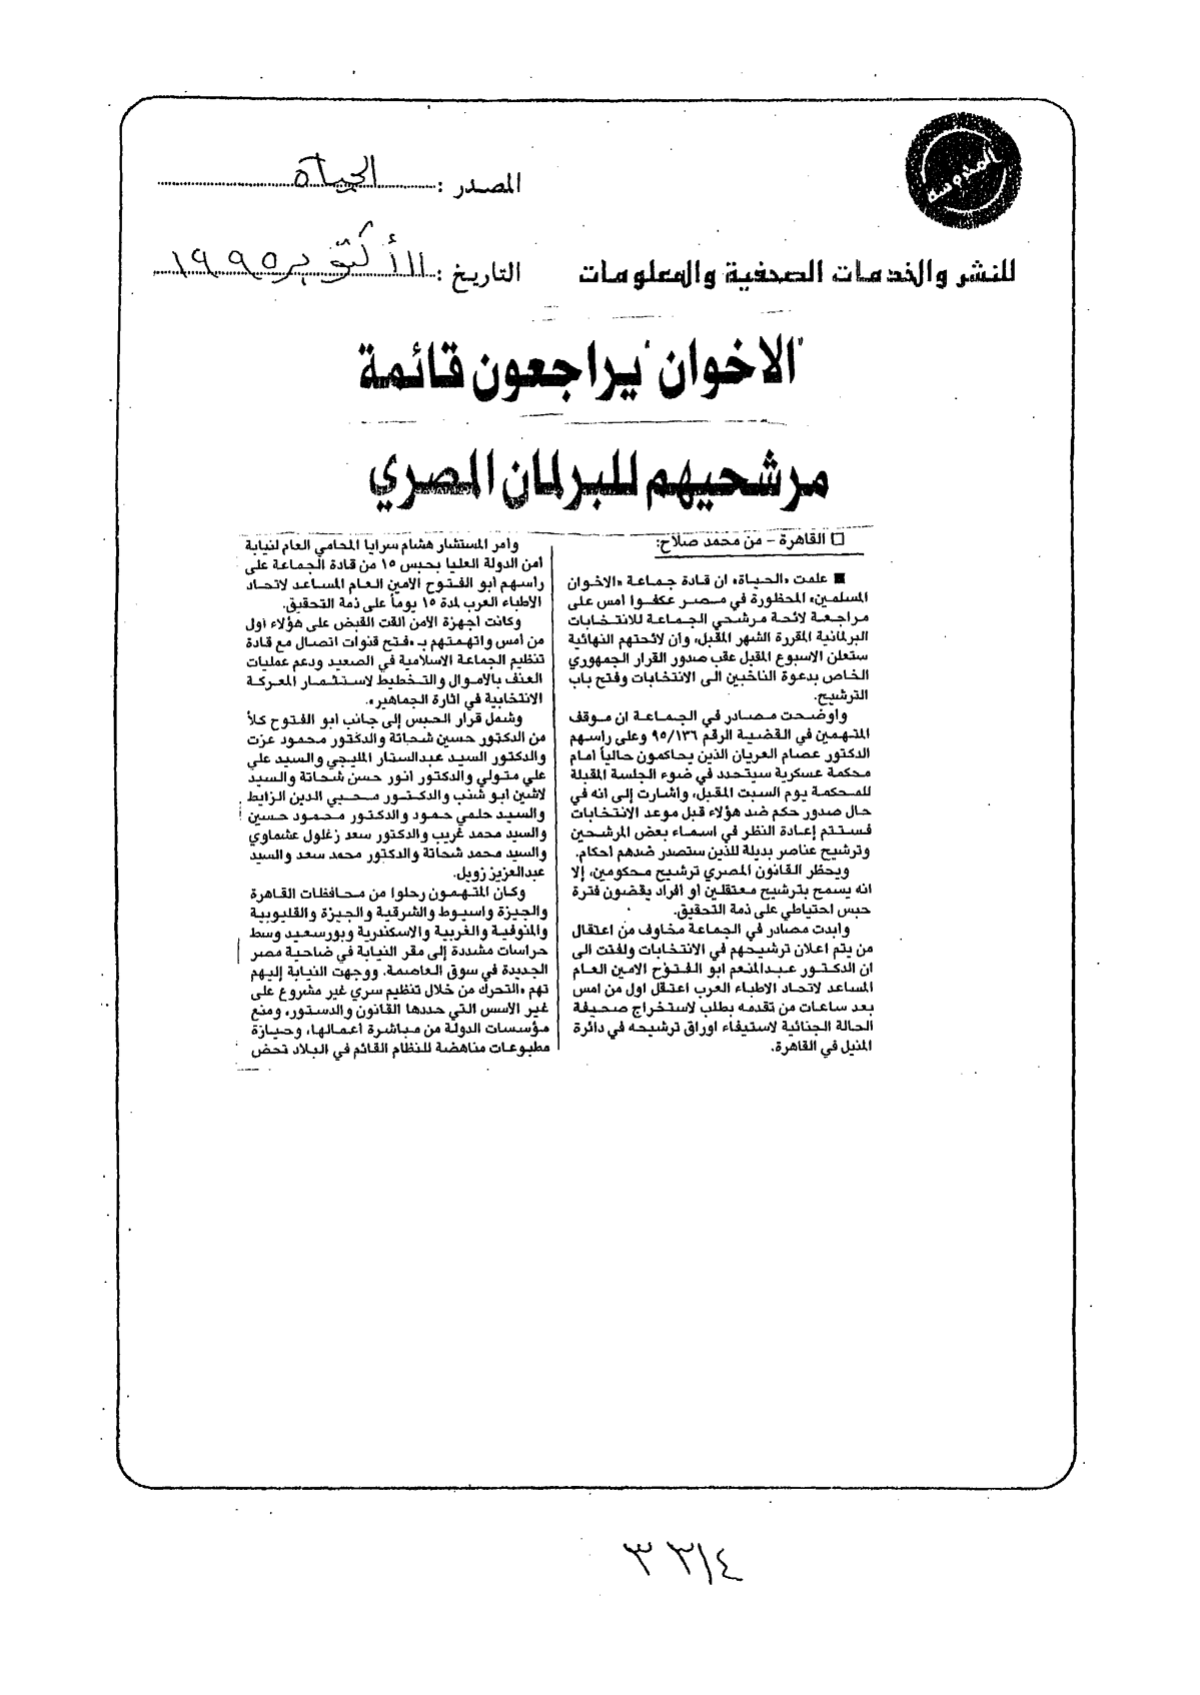 المدروسة
المصدر : الحياة
للنشر والخدمات الصحفية والمعلومات
التاريخ : ١١ أكتوبر ١٩٩٥
"الاخوان" يراجعون قائمة
مرشحيهم للبرلمان المصري
□ القاهرة - من محمد صلاح:
■ علمت «الحياة» ان قادة جماعة «الاخوان
المسلمين» المحظورة في مصر عكفوا امس على
مراجعة لائحة مرشحي الجماعة للانتخابات
البرلمانية المقررة الشهر المقبل، وان لائحتهم النهائية
ستعلن الاسبوع المقبل عقب صدور القرار الجمهوري
الخاص بدعوة الناخبين الى الانتخابات وفتح باب
الترشيح.
واوضحت مصادر في الجماعة ان موقف
المتهمين في القضية الرقم ٩٥/١٣٦ وعلى راسهم
الدكتور عصام العريان الذين يحاكمون حالياً امام
محكمة عسكرية سيتحدد في ضوء الجلسة المقبلة
للمحكمة يوم السبت المقبل، واشارت إلى انه في
حال صدور حكم ضد هؤلاء قبل موعد الانتخابات
فستتم إعادة النظر في اسماء بعض المرشحين
وترشيح عناصر بديلة للذين ستصدر ضدهم أحكام.
ويحظر القانون المصري ترشيح محكومين، إلا
انه يسمح بترشيح معتقلين او أفراد يقضون فترة
حبس احتياطي على ذمة التحقيق.
وابدت مصادر في الجماعة مخاوف من اعتقال
من يتم اعلان ترشيحهم في الانتخابات ولفتت الى
ان الدكتور عبدالمنعم ابو الفتوح الامين العام
المساعد لاتحاد الاطباء العرب اعتقل اول من امس
بعد ساعات من تقدمه بطلب لاستخراج صحيفة
الحالة الجنائية لاستيفاء اوراق ترشيحه في دائرة
المنيل في القاهرة.
وامر المستشار هشام سرايا المحامي العام لنيابة
أمن الدولة العليا بحبس ١٥ من قادة الجماعة على
راسهم ابو الفتوح الامين العام المساعد لاتحاد
الاطباء العرب لمدة ١٥ يوماً على ذمة التحقيق.
وكانت اجهزة الامن القت القبض على هؤلاء اول
من امس واتهمتهم بـ «فتح قنوات اتصال مع قادة
تنظيم الجماعة الاسلامية في الصعيد ودعم عمليات
العنف بالاموال والتخطيط لاستثمار المعركة
الانتخابية في اثارة الجماهير».
وشمل قرار الحبس إلى جانب ابو الفتوح كلاً
من الدكتور حسين شحاتة والدكتور محمود عزت
والدكتور السيد عبدالستار المليجي والسيد علي
علي متولي والدكتور انور حسن شحاتة والسيد
لاشين ابو شنب والدكتور محيي الدين الزايط
والسيد حلمي حمود والدكتور محمود حسين
والسيد محمد غريب والدكتور سعد زغلول عشماوي
والسيد محمد شحاتة والدكتور محمد سعد والسيد
عبدالعزيز زويل.
وكان المتهمون رحلوا من محافظات القاهرة
والجيزة واسيوط والشرقية والجيزة والقليوبية
والمنوفية والغربية والاسكندرية وبورسعيد وسط
حراسات مشددة إلى مقر النيابة في ضاحية مصر
الجديدة في سوق العاصمة. ووجهت النيابة إليهم
تهم «التحرك من خلال تنظيم سري غير مشروع على
غير الاسس التي حددها القانون والدستور، ومنع
مؤسسات الدولة من مباشرة أعمالها، وحيازة
مطبوعات مناهضة للنظام القائم في البلاد تحض
٣٣١٤